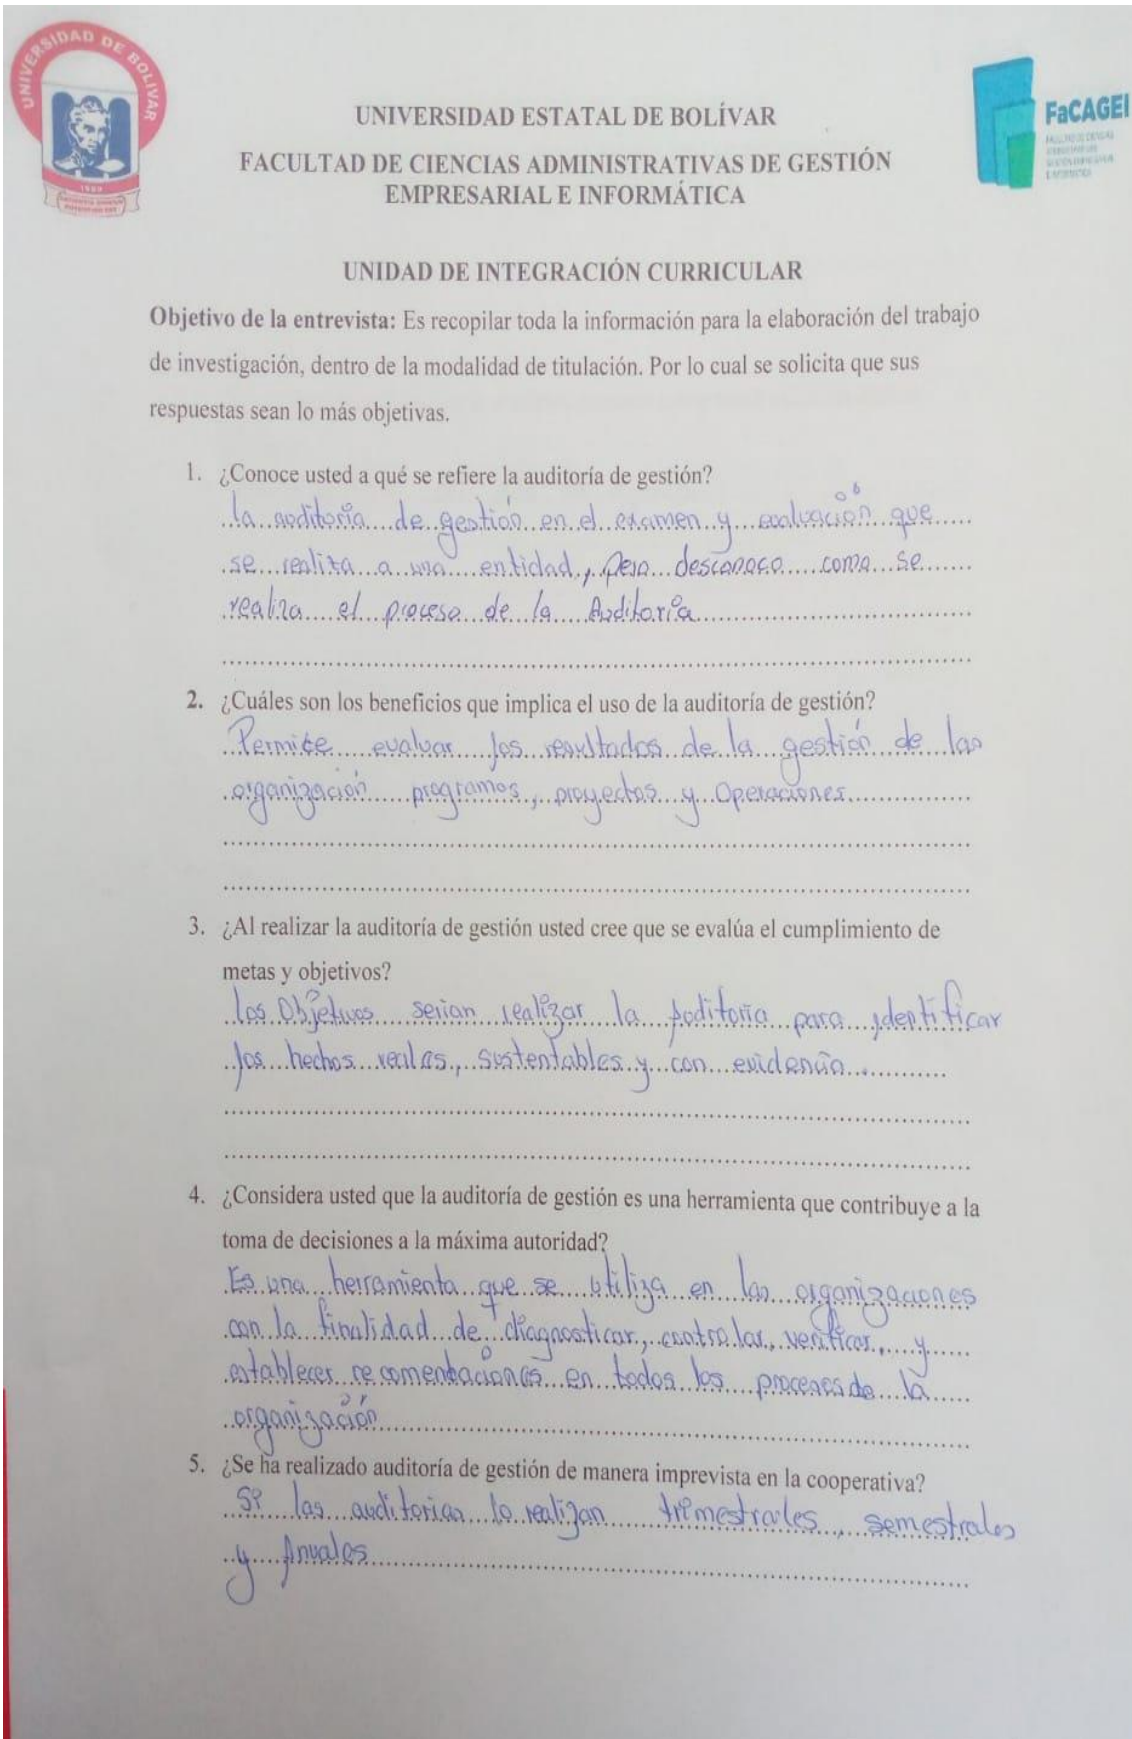 UNIVERSIDAD DE BOLIVAR
1989
FaCAGEI
UNIVERSIDAD ESTATAL DE BOLÍVAR
FACULTAD DE CIENCIAS ADMINISTRATIVAS DE GESTIÓN
EMPRESARIAL E INFORMÁTICA
UNIDAD DE INTEGRACIÓN CURRICULAR
Objetivo de la entrevista: Es recopilar toda la información para la elaboración del trabajo
de investigación, dentro de la modalidad de titulación. Por lo cual se solicita que sus
respuestas sean lo más objetivas.
1. ¿Conoce usted a qué se refiere la auditoría de gestión?
la auditoría de gestión en el examen y evaluación que
se realiza a una entidad, pero desconoco como se
realiza el proceso de la Auditoría
2. ¿Cuáles son los beneficios que implica el uso de la auditoría de gestión?
Permite evaluar los resultados de la gestión de las
organización programas, proyectos y Operaciones
3. ¿Al realizar la auditoría de gestión usted cree que se evalúa el cumplimiento de
metas y objetivos?
los Objetivos serian realizar la Auditoria para identificar
los hechos reales, sustentables y con evidencia
4. ¿Considera usted que la auditoría de gestión es una herramienta que contribuye a la
toma de decisiones a la máxima autoridad?
Es una herramienta que se utiliza en las organizaciones
con la finalidad de diagnosticar, controlar, verificar, y
establecer recomendaciones en todos los procesos de la
organización
5. ¿Se ha realizado auditoría de gestión de manera imprevista en la cooperativa?
Si las auditorias lo realizan trimestrales, semestrales
y Anuales